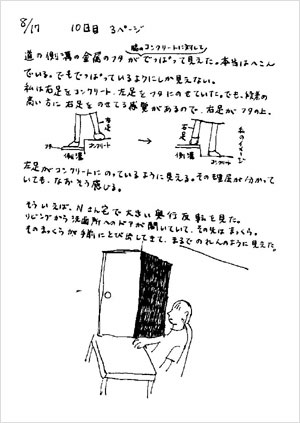 8/17 10日目 3ページ
脇のコンクリートに対して
道の側溝の金属のフタがでっぱって見えた。本当はへこん
でいる。でもでっぱっているようにしか見えない。
私は右足をコンクリート、左足をフタにのせていた。でも、段差の
高い方に右足をのせてる感覚があるので、右足がフタの上、
右足
フタ
側溝
コンクリート
→
右足
私のイメージ
コンクリート
側溝
左足がコンクリートにのっているように見える。その理屈が分かって
いても、なおそう感じる。
そういえば、Nさん宅で大きい奥行反転を見た。
リビングから洗面所へのドアが開いていて、その先はまっくら。
そのまっくらが手前にとび出してきて、まるでのれんのように見えた。